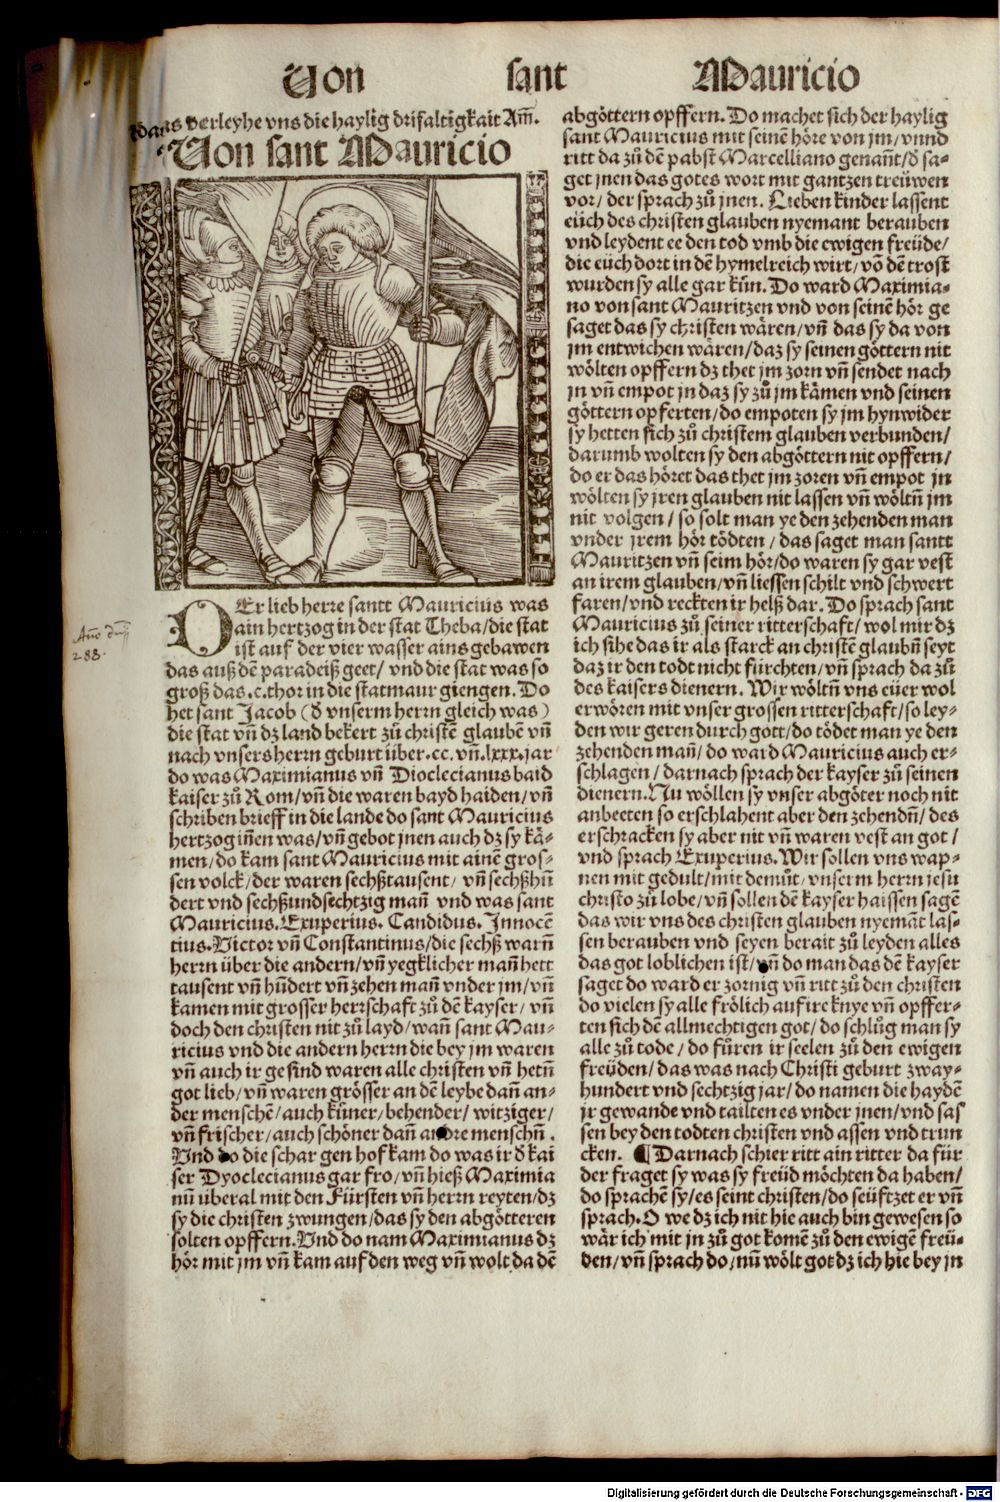 Von sant Mauricio
das verleyhe vns die haylig drifaltigkait Am̄.
Von sant Mauricio
Anno dnj
288.
DEr lieb herre santt Mauricius was
ain hertzog in der stat Theba/die stat
ist auf der vier wasser ains gebawen
das auß dē paradeiß geet/ vnd die stat was so
groß das .c. thor in die statmaur giengen. Do
het sant Jacob (d̄ vnserm herrn gleich was)
die stat vn̄ dz land bekert zů christē glauben vn̄
nach vnsers herrn geburt über .cc. vn̄ .lxxx. jar
do was Maximianus vn̄ Dioclecianus baid
kaiser zů Rom/vn̄ die waren bayd haiden/vn̄
schriben brieff in die lande do sant Mauricius
hertzog iñen was/vn̄ gebot jnen auch dz sy kä⸗
men/do kam sant Mauricius mit ainē gros⸗
sen volck/der waren sechßtausent/ vn̄ sechßhū
dert vnd sechßundsechtzig man̄ vnd was sant
Mauricius. Exuperius. Candidus. Innocē
tius. Victor vn̄ Constantinus/die sechß warn̄
herrn über die andern/vn̄ yegklicher man̄ hett
tausent vn̄ hūdert vn̄ zehen man̄ vnder jm/vn̄
kamen mit grosser herrschaft zů dē kayser/ vn̄
doch den christen nit zů layd/wan̄ sant Mau⸗
ricius vnd die andern herrn die bey jm waren
vn̄ auch ir gesind waren alle christen vn̄ hetn̄
got lieb/vn̄ waren grösser an dē leybe dan̄ an⸗
der menschē/auch küner/behender/ witziger/
vn̄ frischer/auch schöner dan̄ andre menschn̄.
Vnd do die schar gen hof kam do was ir d̄ kai
ser Dyoclecianus gar fro/vn̄ hieß Maximia
nū überal mit den Fürsten vn̄ herrn reyten/dz
sy die christen zwungen/das sy den abgötteren
solten opffern. Vnd do nam Maximianus dz
hör mit jm vn̄ kam auf den weg vn̄ wolt da dē
abgöttern opffern. Do machet sich der haylig
sant Mauricius mit seinē höre von jm/vnnd
ritt da zů dē pabst Marcelliano genan̄t/d̄ sa⸗
get jnen das gotes wort mit gantzen treüwen
vor/ der sprach zů jnen. Lieben kinder lassent
eüch des christen glauben nyemant berauben
vnd leydent ee den tod vmb die ewigen freüde/
die eüch dort in dē hymelreich wirt/vō dē trost
wurden sy alle gar kün. Do ward Maximia⸗
no von sant Mauritzen vnd von seinē hör ge
saget das sy christen wären/vn̄ das sy da von
jm entwichen wären/daz sy seinen göttern nit
wölten opffern dz thet jm zorn vn̄ sendet nach
jn vn̄ empot jn daz sy zů jm kämen vnd seinen
göttern opferten/do empoten sy jm hynwider
sy hetten sich zů christem glauben verbunden/
darumb wolten sy den abgöttern nit opffern/
do er das höret das thet jm zoren vn̄ empot jn
wölten sy jren glauben nit lassen vn̄ wöltn̄ jm
nit volgen/ so solt man ye den zehenden man
vnder jrem hör tödten/ das saget man santt
Mauritzen vn̄ seim hör/do waren sy gar vest
an irem glauben/vn̄ liessen schilt vnd schwert
faren/vnd reckten ir helß dar. Do sprach sant
Mauricius zů seiner ritterschaft/ wol mir dz
ich sihe das ir als starck an christē glaubn̄ seyt
daz ir den todt nicht fürchten/vn̄ sprach da zů
des kaisers dienern. Wir wöltn̄ vns eüer wol
erwören mit vnser grossen ritterschaft/so ley⸗
den wir geren durch gott/do tödet man ye den
zehenden man̄/ do ward Mauricius auch er⸗
schlagen/ darnach sprach der kayser zů seinen
dienern. Nu wöllen sy vnser abgöter noch nit
anbeeten so erschlahent aber den zehendn̄/ des
erschracken sy aber nit vn̄ waren vest an got/
vnd sprach Exuperius. Wir sollen vns wap⸗
nen mit gedult/mit demůt/vnserm herrn jesu
christo zů lobe/vn̄ sollen dē kayser haissen sagē
das wir vns des christen glauben nyemāt las⸗
sen berauben vnd seyen berait zů leyden alles
das got loblichen ist/vn̄ do man das dē kayser
saget do ward er zornig vn̄ ritt zů den christen
do vielen sy alle frölich auf ire knye vn̄ opffer⸗
ten sich dē allmechtigen got/do schlůg man sy
alle zů tode/ do fůren ir seelen zů den ewigen
freüden/das was nach Christi geburt zway⸗
hundert vnd sechtzig jar/do namen die haydē
jr gewande vnd tailten es vnder jnen/vnd sas
sen bey den todten christen vnd assen vnd trun
cken. ¶ Darnach schier ritt ain ritter da für
der fraget sy was sy freüd möchten da haben/
do sprachē sy/es seint christen/do seüftzet er vn̄
sprach. O we dz ich nit hie auch bin gewesen so
wär ich mit jn zů got komē zů den ewigē freü⸗
den/vn̄ sprach do/nū wölt got dz ich hie bey jn
Digitalisierung gefördert durch die Deutsche Forschungsgemeinschaft - DFG